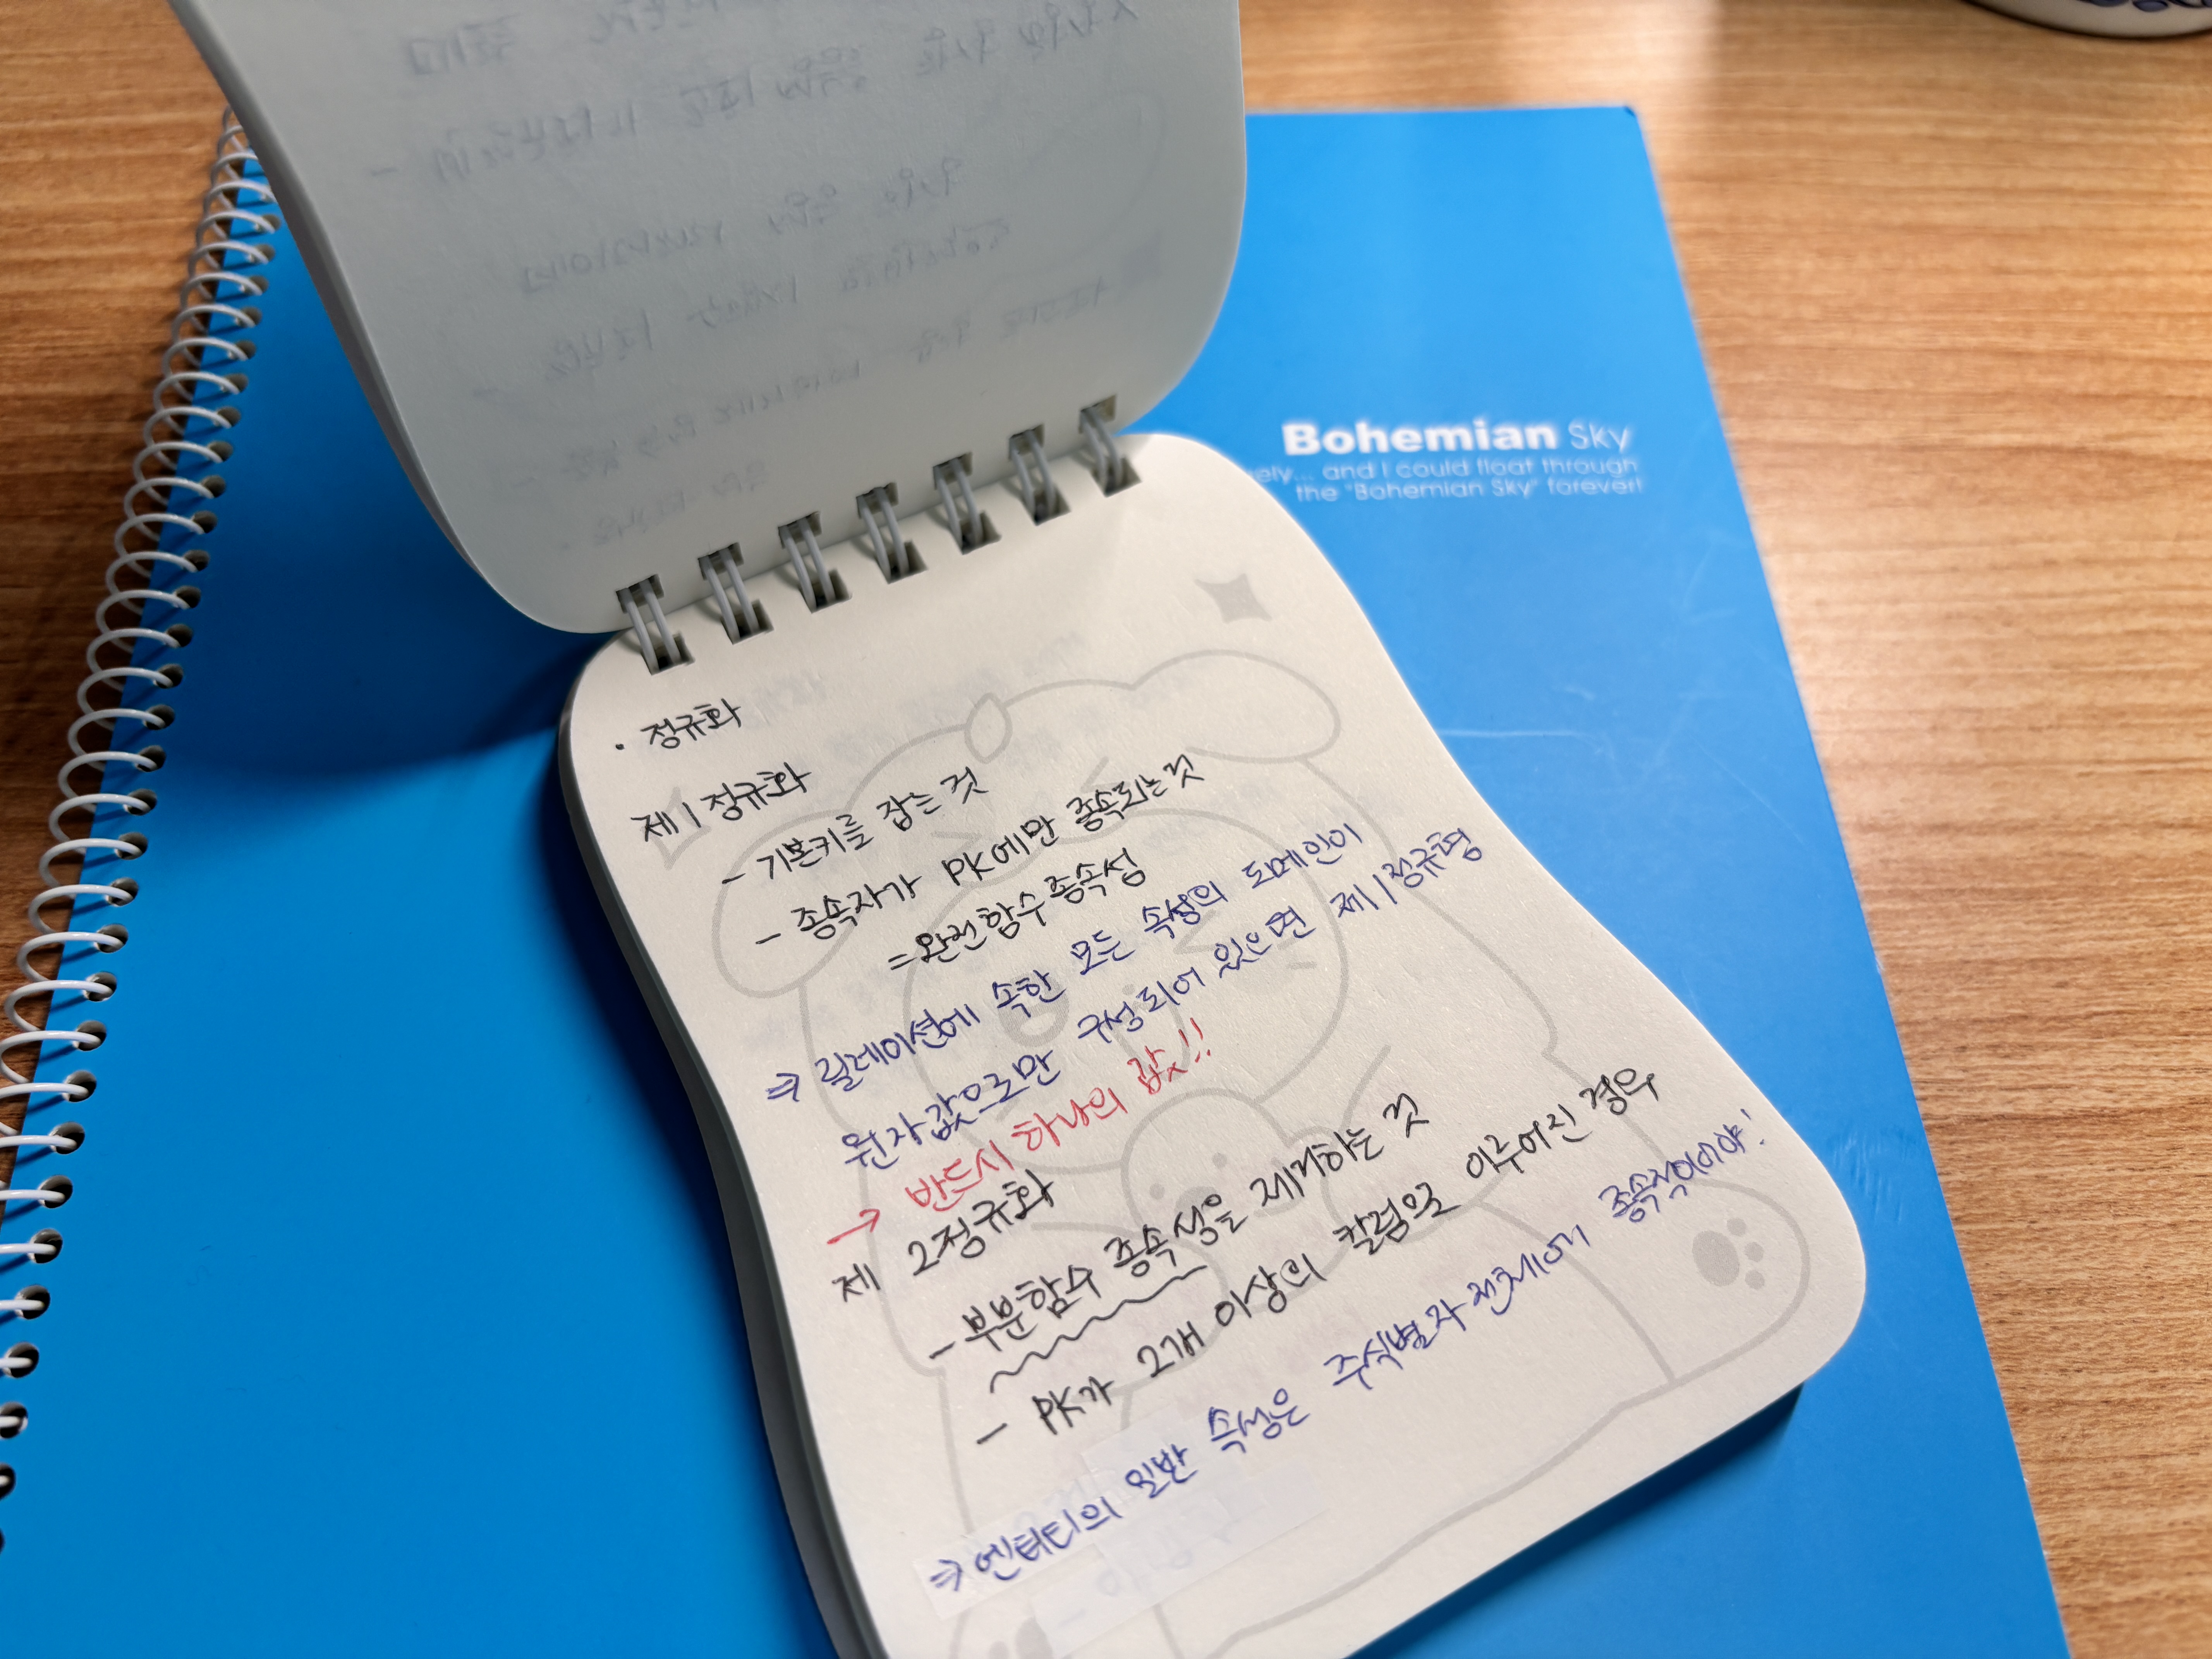 Bohemian Sky
ely... and I could float through
the "Bohemian Sky" forever!
· 정규화
제 1 정규화
- 기본키를 잡는 것
- 종속자가 PK에만 종속되는 것
= 완전함수종속성
⇒ 릴레이션에 속한 모든 속성의 도메인이
원자값으로만 구성되어 있으면 제 1 정규형
→ 반드시 하나의 값!!
제 2정규화
- 부분함수 종속성을 제거하는 것
- PK가 2개 이상의 칼럼으로 이루어진 경우
⇒ 엔터티의 일반 속성은 주식별자 전체에 종속적이어야!